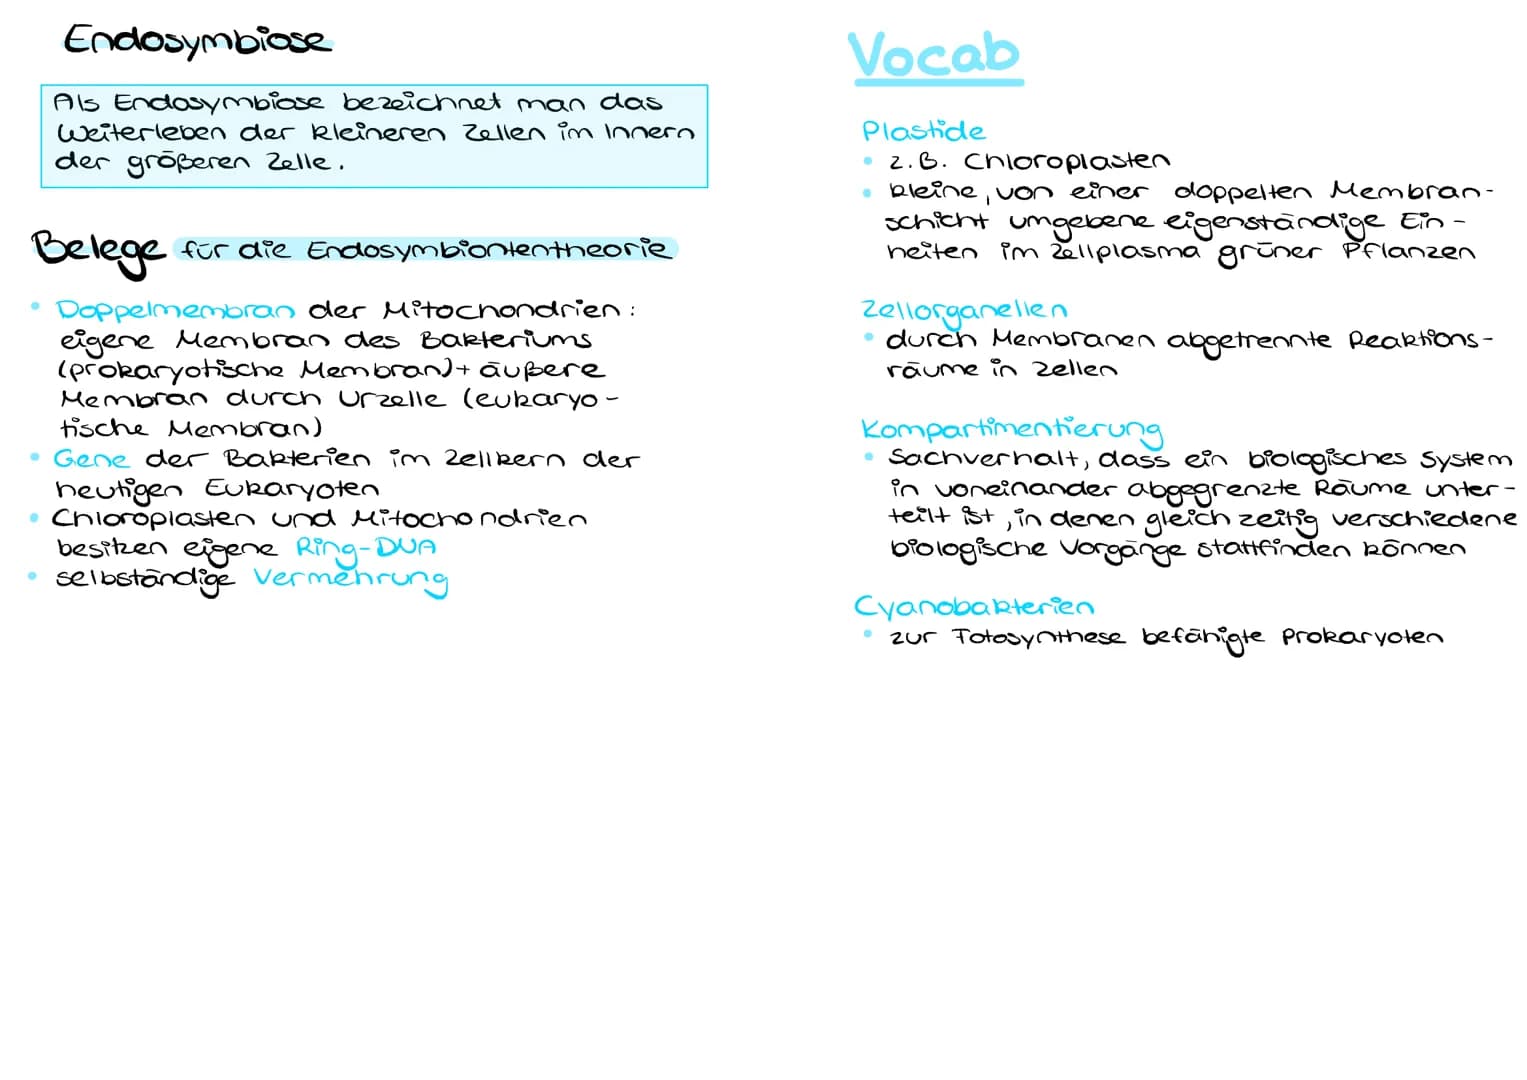 Endosymbiose
Als Endosymbiose bezeichnet man das
Weiterleben der kleineren Zellen im Innern
der größeren Zelle.
Belege für die Endosymbiontentheorie
• Doppelmembran der Mitochondrien:
eigene Membran des Bakteriums
(prokaryotische Membran)+ äußere
Membran durch Urzelle (eukaryo-
tische Membran)
• Gene der Bakterien im Zellkern der
heutigen Eukaryoten
• Chloroplasten und Mitochondrien
besitzen eigene Ring-DNA
• selbständige Vermehrung
Vocab
Plastide
• z.B. Chloroplasten
• kleine, von einer doppelten Membran-
schicht umgebene eigenständige Ein-
heiten im Zellplasma grüner Pflanzen
Zellorganellen
• durch Membranen abgetrennte Reaktions-
räume in Zellen
Kompartimentierung
• Sachverhalt, dass ein biologisches System
in voneinander abgegrenzte Räume unter-
teilt ist, in denen gleichzeitig verschiedene
biologische Vorgänge stattfinden können
Cyanobakterien
• zur Fotosynthese befähigte Prokaryoten